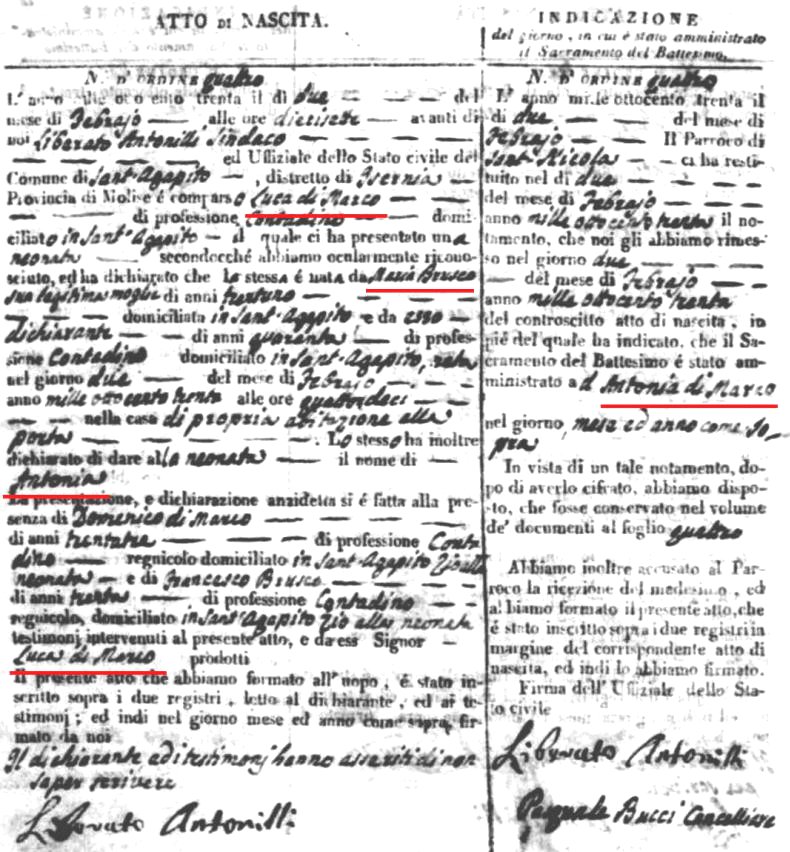 ATTO DI NASCITA.
N. D'ORDINE quattro
L'anno mille ottocento trenta il dì due del
mese di Febrajo alle ore diecisete avanti di
noi Liberato Antonilli Sindaco
ed Uffiziale dello Stato civile del
Comune di Sant-Agapito, distretto di Isernia
Provincia di Molise é comparso Luca di Marco
di professione Contadino domi-
ciliato in Sant-Agapito il quale ci ha presentato una
neonata secondocché abbiamo ocularmente ricono-
sciuto, ed ha dichiarato che la stessa é nata da Maria Brusco
sua legitima moglie di anni trentuno
domiciliata in Sant-Agapito e da esso
dichiarante di anni quaranta di profes-
sione Contadino domiciliato in Sant-Agapito, nata
nel giorno due del mese di Febrajo
anno mille ottocento trenta alle ore quattordeci
nella casa di propria abitazione alla
porta . Lo stesso ha inoltre
dichiarato di dare alla neonata il nome di
Antonia
La presentazione, e dichiarazione anzidetta si é fatta alla pre-
senza di Domenico di Marco
di anni trentatre di professione Conta
dino regnicolo domiciliato in Sant-Agapito Zio alla
neonata e di Francesco Brusco
di anni trenta di professione Contadino
regnicolo, domiciliato in Sant-Agapito Zio alla neonata
testimonj intervenuti al presente atto, e da esso Signor
Luca di Marco prodotti
Il presente atto che abbiamo formato all'uopo, é stato in-
scritto sopra i due registri, letto al dichiarante, ed ai te-
stimonj; ed indi nel giorno mese ed anno come sopra, fir-
mato da noi
Il dichiarante ed i testimonj hanno asseriti di non
saper scrivere
Liberato Antonilli
INDICAZIONE
del giorno, in cui é stato amministrato
il Sacramento del Battesimo.
N. D'ORDINE quattro
L'anno mille ottocento trenta il
dì due del mese di
Febrajo Il Parroco di
Sant-Nicola ci ha resti-
tuito nel dì due
del mese di Febrajo
anno mille ottocento trenta il no-
tamento, che noi gli abbiamo rimes-
so nel giorno due
del mese di Febrajo
anno mille ottocento trenta
del controscitto atto di nascita, in
pié del quale ha indicato, che il Sa-
cramento del Battesimo é stato am-
ministrato a d Antonia di Marco
nel giorno, mese ed anno come so-
pra
In vista di un tale notamento, do-
po di averlo cifrato, abbiamo dispo-
sto, che fosse conservato nel volume
de' documenti al foglio quattro
Abbiamo inoltre accusato al Par-
roco la ricezione del medesimo, ed
abbiamo formato il presente atto, che
é stato inscritto sopra i due registri in
margine del corrispondente atto di
nascita, ed indi lo abbiamo firmato.
Firma dell'Uffiziale dello Sta-
to civile
Liberato Antonilli
Pasquale Bucci Cancelliere